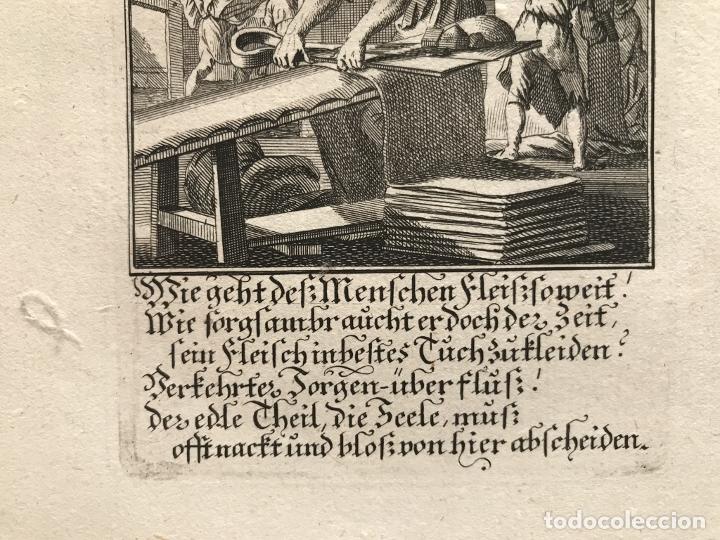 Wie geht deß Menschen Fleiß so weit!
Wie sorgsam braucht er doch der Zeit,
sein Fleisch in bestes Tuch zu kleiden?
Verkehrter Sorgen-überfluß!
der edle Theil, die Seele, muß
offt nackt und bloß von hier abscheiden.
todocoleccion.net